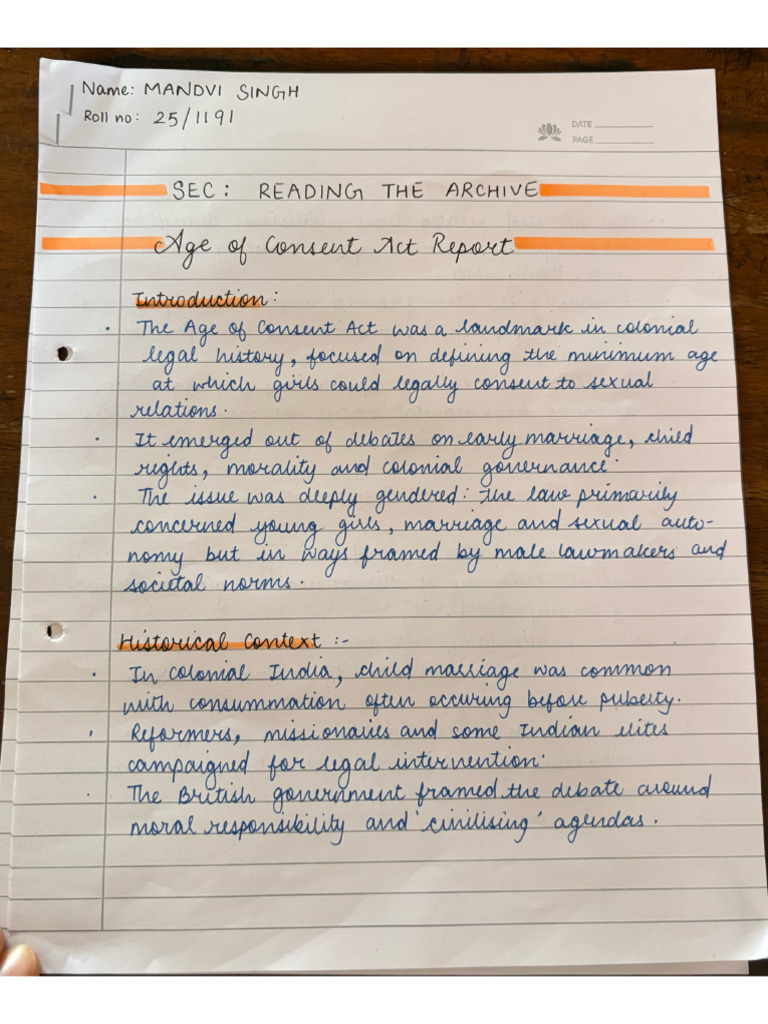 Name: MANDVI SINGH
Roll no: 25/1191
DATE
PAGE
SEC: READING THE ARCHIVE
Age of Consent Act Report
Introduction:
• The Age of Consent Act was a landmark in colonial
legal history, focused on defining the minimum age
at which girls could legally consent to sexual
relations.
• It emerged out of debates on early marriage, child
rights, morality and colonial governance.
• The issue was deeply gendered: the law primarily
concerned young girls, marriage and sexual auto-
nomy but in ways framed by male lawmakers and
societal norms.
Historical Context :-
• In colonial India, child marriage was common
with consummation often occuring before puberty.
• Reformers, missionaries and some Indian elites
campaigned for legal intervention.
• The British government framed the debate around
moral responsibility and 'civilising' agendas.